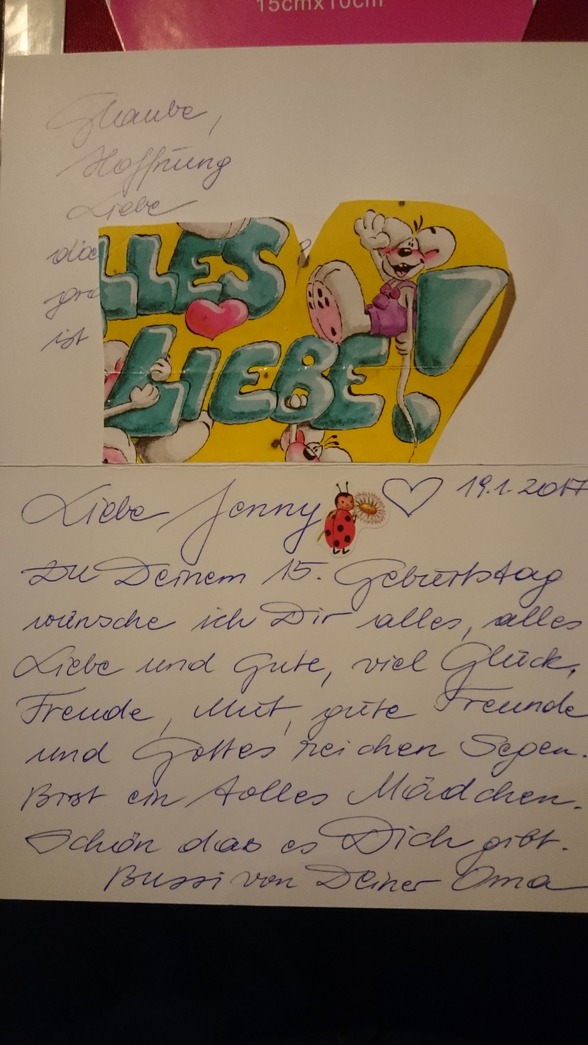 15cmx10cm
Glaube,
Hoffnung
Liebe
die
ist
ALLES
LIEBE!
Liebe Jenny 19.1.2017
Zu Deinem 15. Geburtstag
wünsche ich Dir alles, alles
Liebe und Gute, viel Glück,
Freude, Mut, gute Freunde
und Gottes reichen Segen.
Bist ein tolles Mädchen.
Schön das es Dich gibt.
Bussi von Deiner Oma